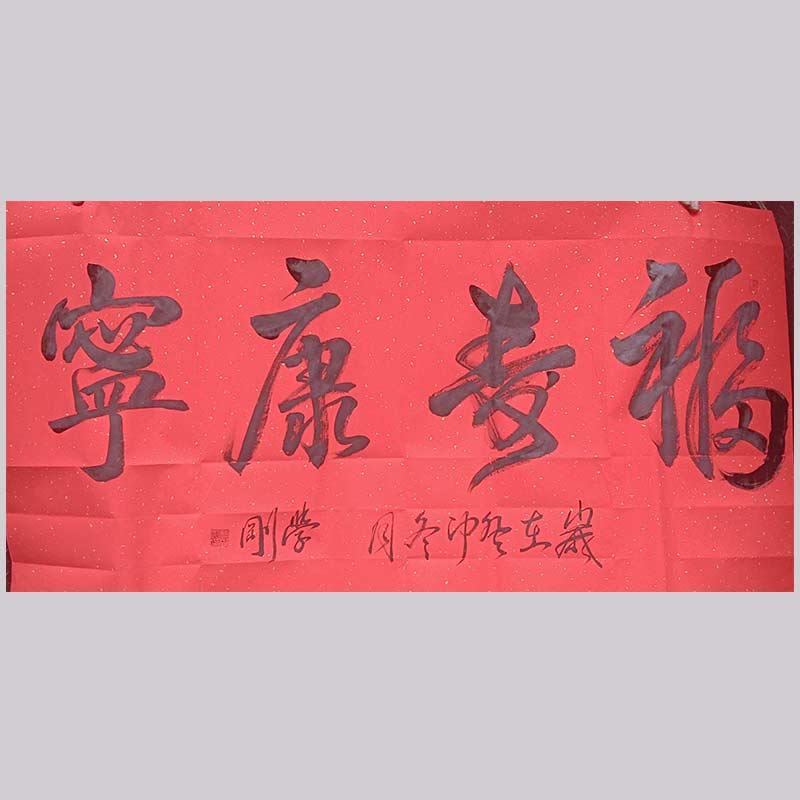 福壽康寧
歲在癸卯冬月 學剛